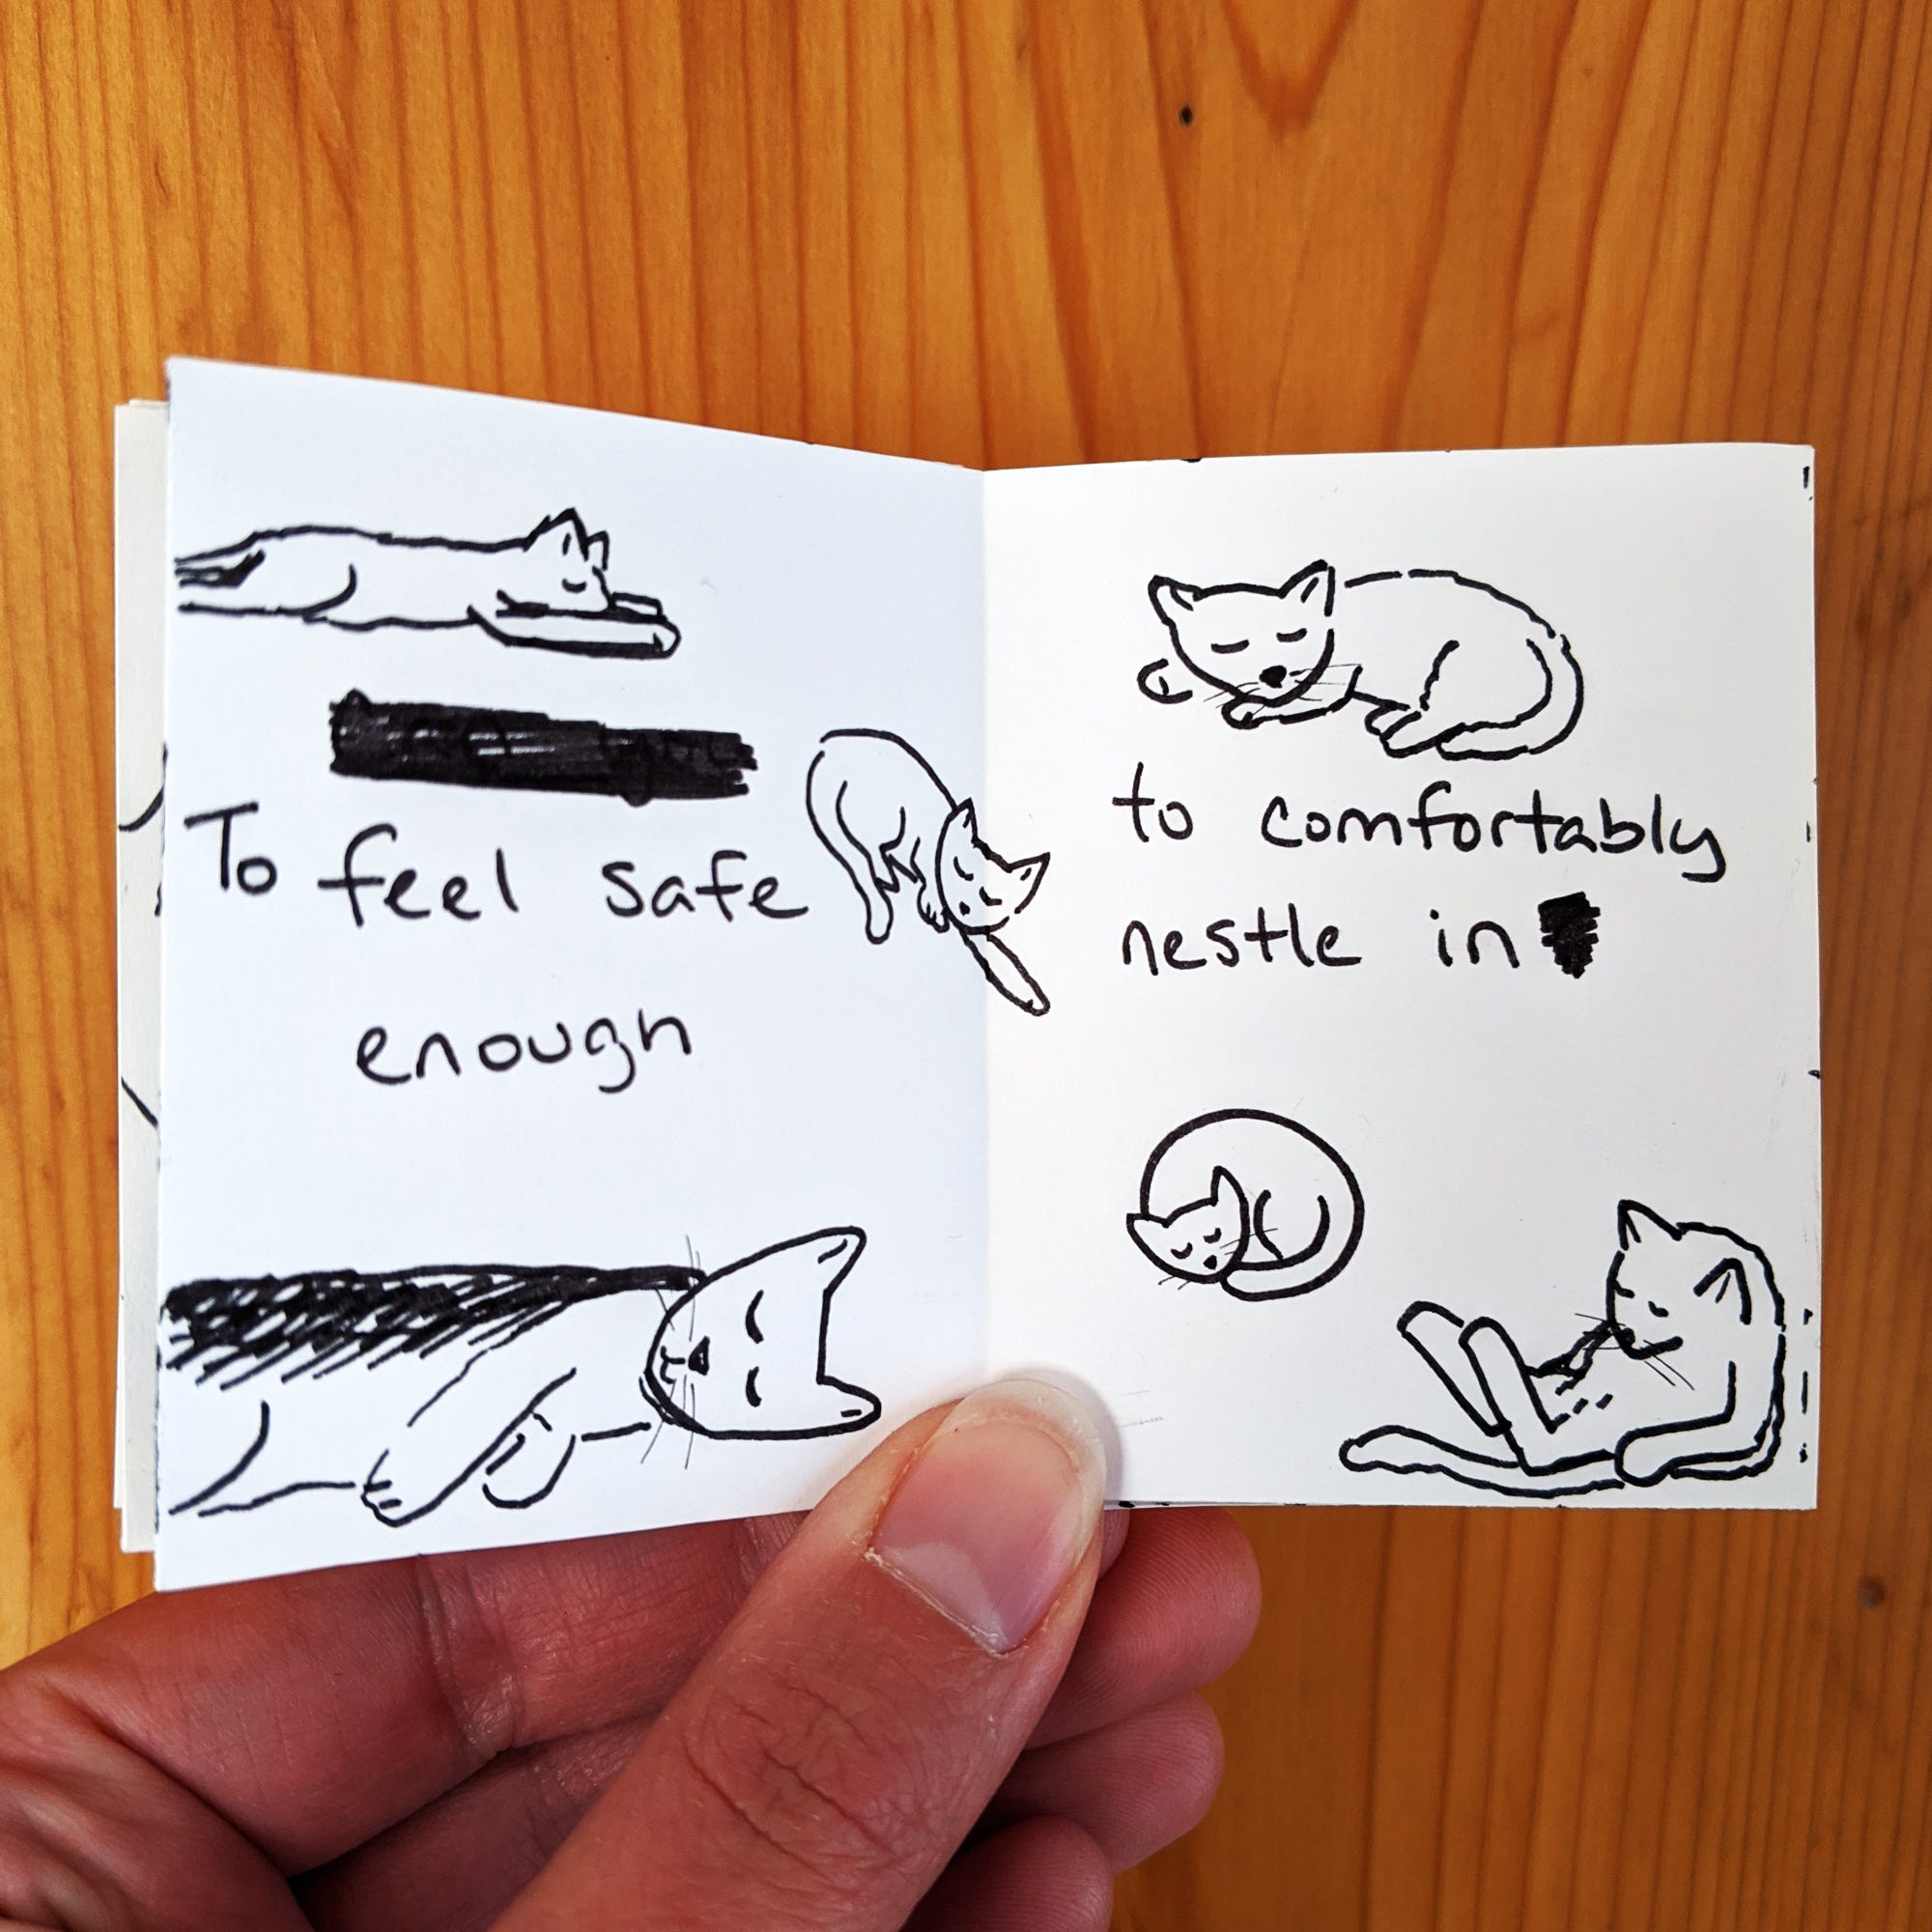 To feel safe
enough
to comfortably
nestle in